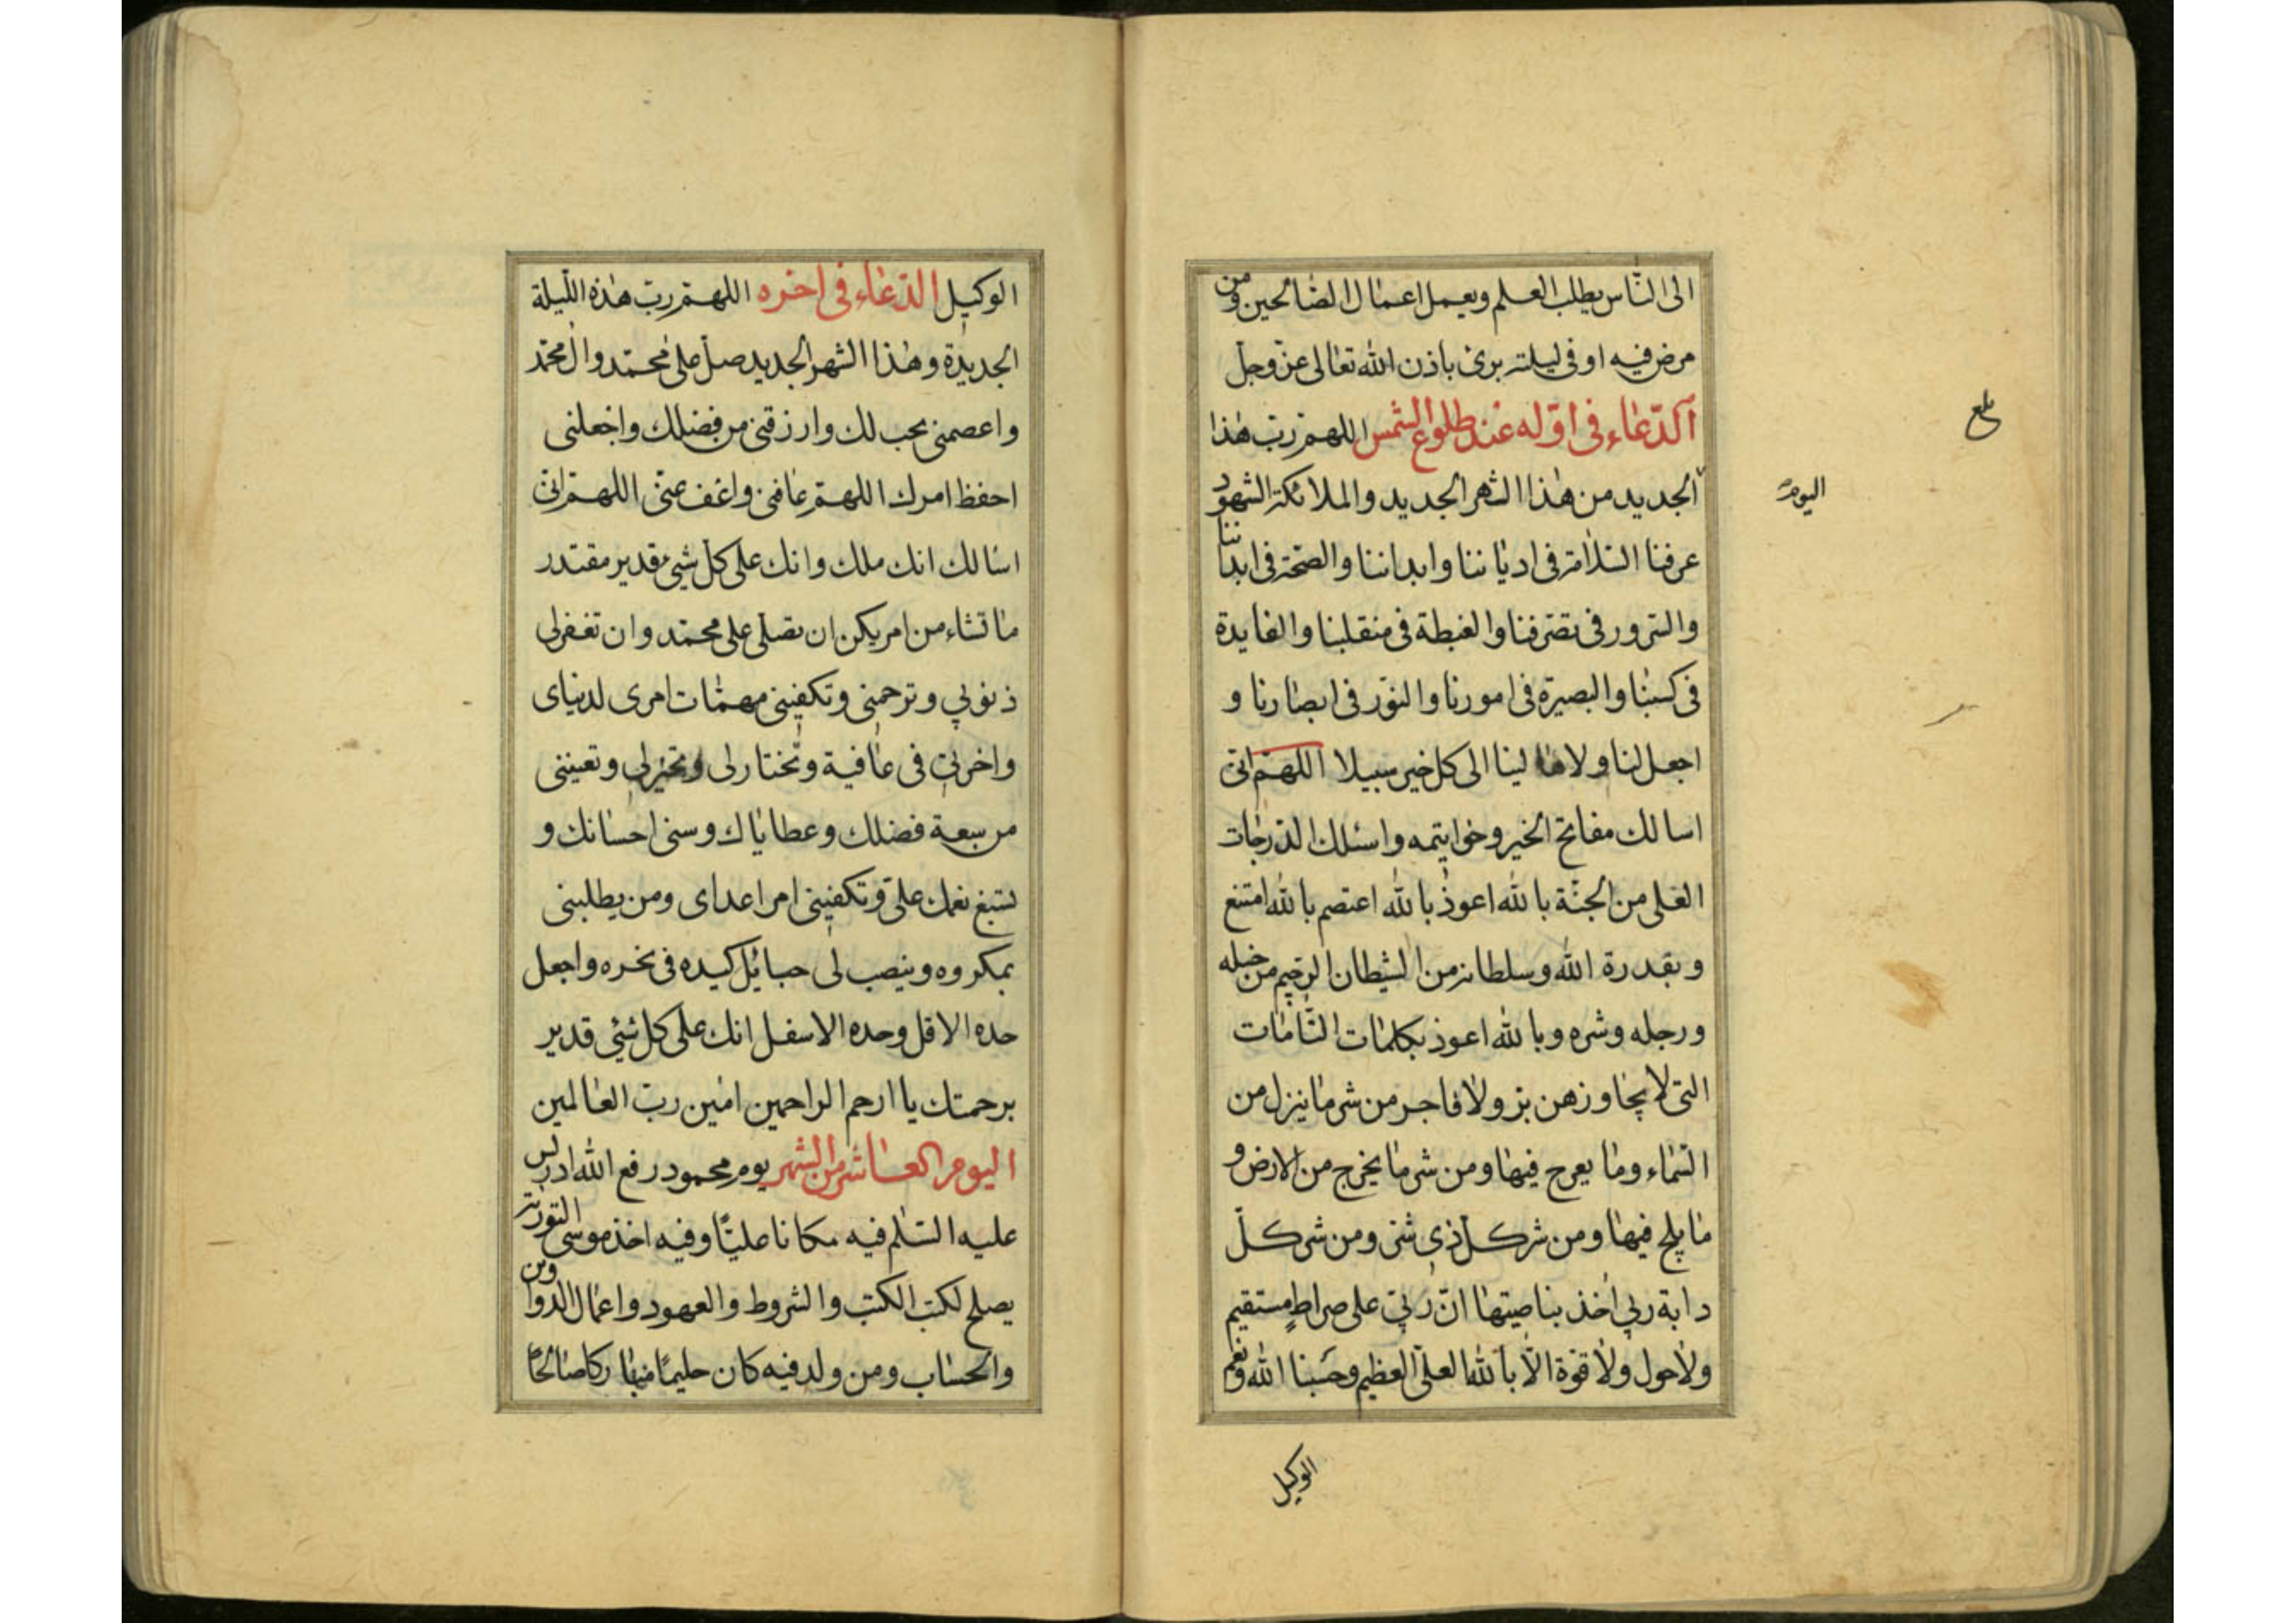 الى الناس يطلب العلم ويعمل اعمال الصالحين ومن
مرض فيه او فى ليلته برئ باذن الله تعالى عزّ وجلّ
الدّعاء فى اوّله عند طلوع الشمس اللهمّ ربّ هذا
بلغ
اليوم
الجديد من هذا الشهر الجديد والملائكة الشهود
عرفنا السّلامة فى ادياننا وابداننا والصحّة فى ابداننا
والسّرور فى تصرّفنا والغبطة فى منقلبنا والفايدة
فى كسبنا والبصيرة فى امورنا والنوّر فى ابصارنا و
اجعل لنا ولاهالينا الى كل خير سبيلا اللهمّ انّى
اسالك مفاتح الخير وخوايتمه واسئلك الدّرجات
العلى من الجنّة بالله اعوذ بالله اعتصم بالله امتنع
وبقدرة الله وسلطانه من الشيطان الرّجيم من خيله
ورجله وشره وبالله اعوذ بكلمات التّامّات
التى لا يجاوزهن برّ ولا فاجر من شر ما ينزل من
السّماء وما يعرج فيها ومن شر ما يخرج من الارض و
ما يلج فيها ومن شر كلّ ذى شرّ ومن شر كلّ
دابة ربى اخذ بناصيتها انّ ربّى على صراطٍ مستقيم
ولا حول ولا قوّة الّا بالله العلىّ العظيم وحَسبنا الله ونعم
الوكيل
الوكيل الدّعاء فى اخره اللهمّ ربّ هذه اللّيلة
الجديدة وهذا الشهر الجديد صلّ على محمّد وال محمّد
واعصمنى بحبلك وارزقنى من فضلك واجعلنى
احفظ امرك اللهمّ عافنى واعف عنّى اللهمّ انّى
اسالك انك ملك وانك على كلّ شىء قدير مقتدر
ما تشاء من امر يكن ان تصلّى على محمّد وان تغفرلى
ذنوبى وترحمنى وتكفينى مهمّات امرى لدنياى
واخرتى فى عافية وتختار لى وتخيرلى وتعيننى
من سعة فضلك وعطاياك وسنى احسانك و
تسبغ نعمك علىّ وتكفينى امر اعداى ومن يطلبنى
بمكروه وينصب لى حبائل كيده فى نحره واجعل
حده الاقل وحده الاسفل انك على كل شىء قدير
برحمتك يا ارحم الراحمين امين ربّ العالمين
اليوم العاشر من الشهر يوم محمود رفع الله ادريس
عليه السّلم فيه مكانا عليّا وفيه اخذ موسى التورية
يصلح لكتب الكتب والشروط والعهود واعمال الدواوين
والحساب ومن ولد فيه كان حليمًا مباركا صالحًا